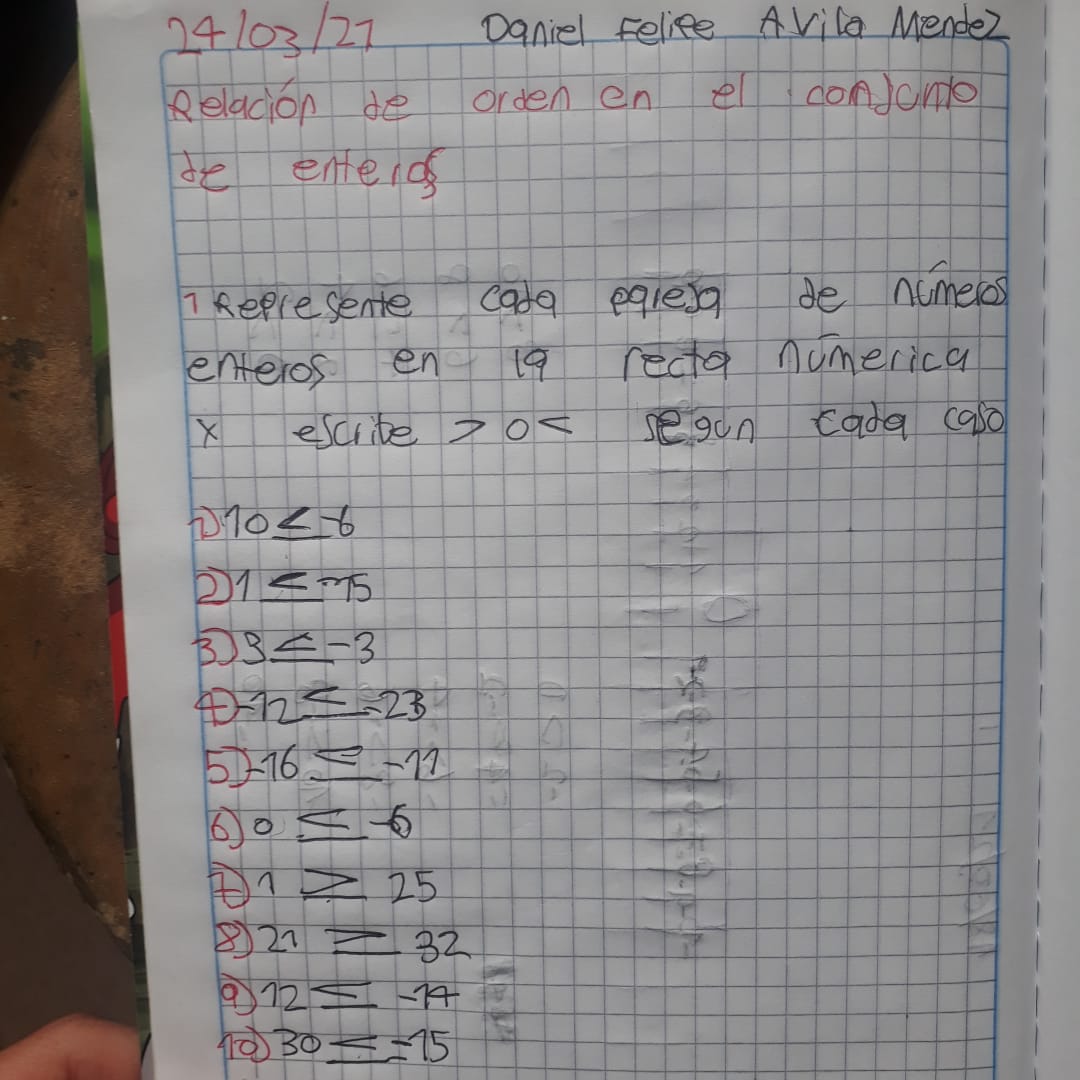 24/03/21 Daniel Felipe Avila Mendez
Relación de orden en el conjunto
de enteros
1 Represente cada pareja de números
enteros en la recta númerica
x escribe > o < segun cada caso
1) 10 < -6
2) 1 < -15
3) 3 < -3
4) -12 < -23
5) -16 < -11
6) 0 < -6
7) 1 > 25
8) 21 > 32
9) 12 < -14
10) 30 < -15